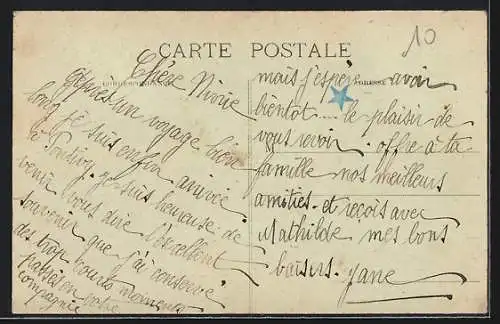 10
CARTE POSTALE
CORRESPONDANCE
ADRESSE
Chère
après un voyage bien
long je suis enfin arrivée
à Pontivy. je suis heureuse de
venir vous dire l'excellent
souvenir que j'ai conservé
des trop courts moments
passés en votre
compagnie
mais j'espère avoir
bientot.... le plaisir de
vous revoir. offre à ta
famille nos meilleurs
amitiés. et reçois avec
Mathilde mes bons
baisers. Jane